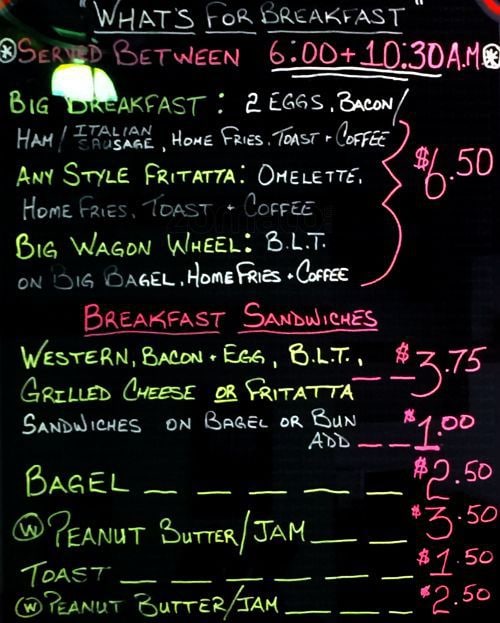 "WHAT'S FOR BREAKFAST"
SERVED BETWEEN 6:00 + 10:30 A.M
BIG BREAKFAST: 2 EGGS, BACON/
HAM/ITALIAN SAUSAGE, HOME FRIES, TOAST + COFFEE
$6.50
ANY STYLE FRITATTA: OMELETTE,
HOME FRIES, TOAST + COFFEE
BIG WAGON WHEEL: B.L.T.
ON BIG BAGEL, HOME FRIES + COFFEE
BREAKFAST SANDWICHES
WESTERN, BACON + EGG, B.L.T.,
GRILLED CHEESE OR FRITATTA __ __ $3.75
SANDWICHES ON BAGEL OR BUN
ADD __ __ $1.00
BAGEL __ __ __ __ __ $2.50
W PEANUT BUTTER/JAM __ __ $3.50
TOAST __ __ __ __ __ __ $1.50
W PEANUT BUTTER/JAM __ __ __ $2.50